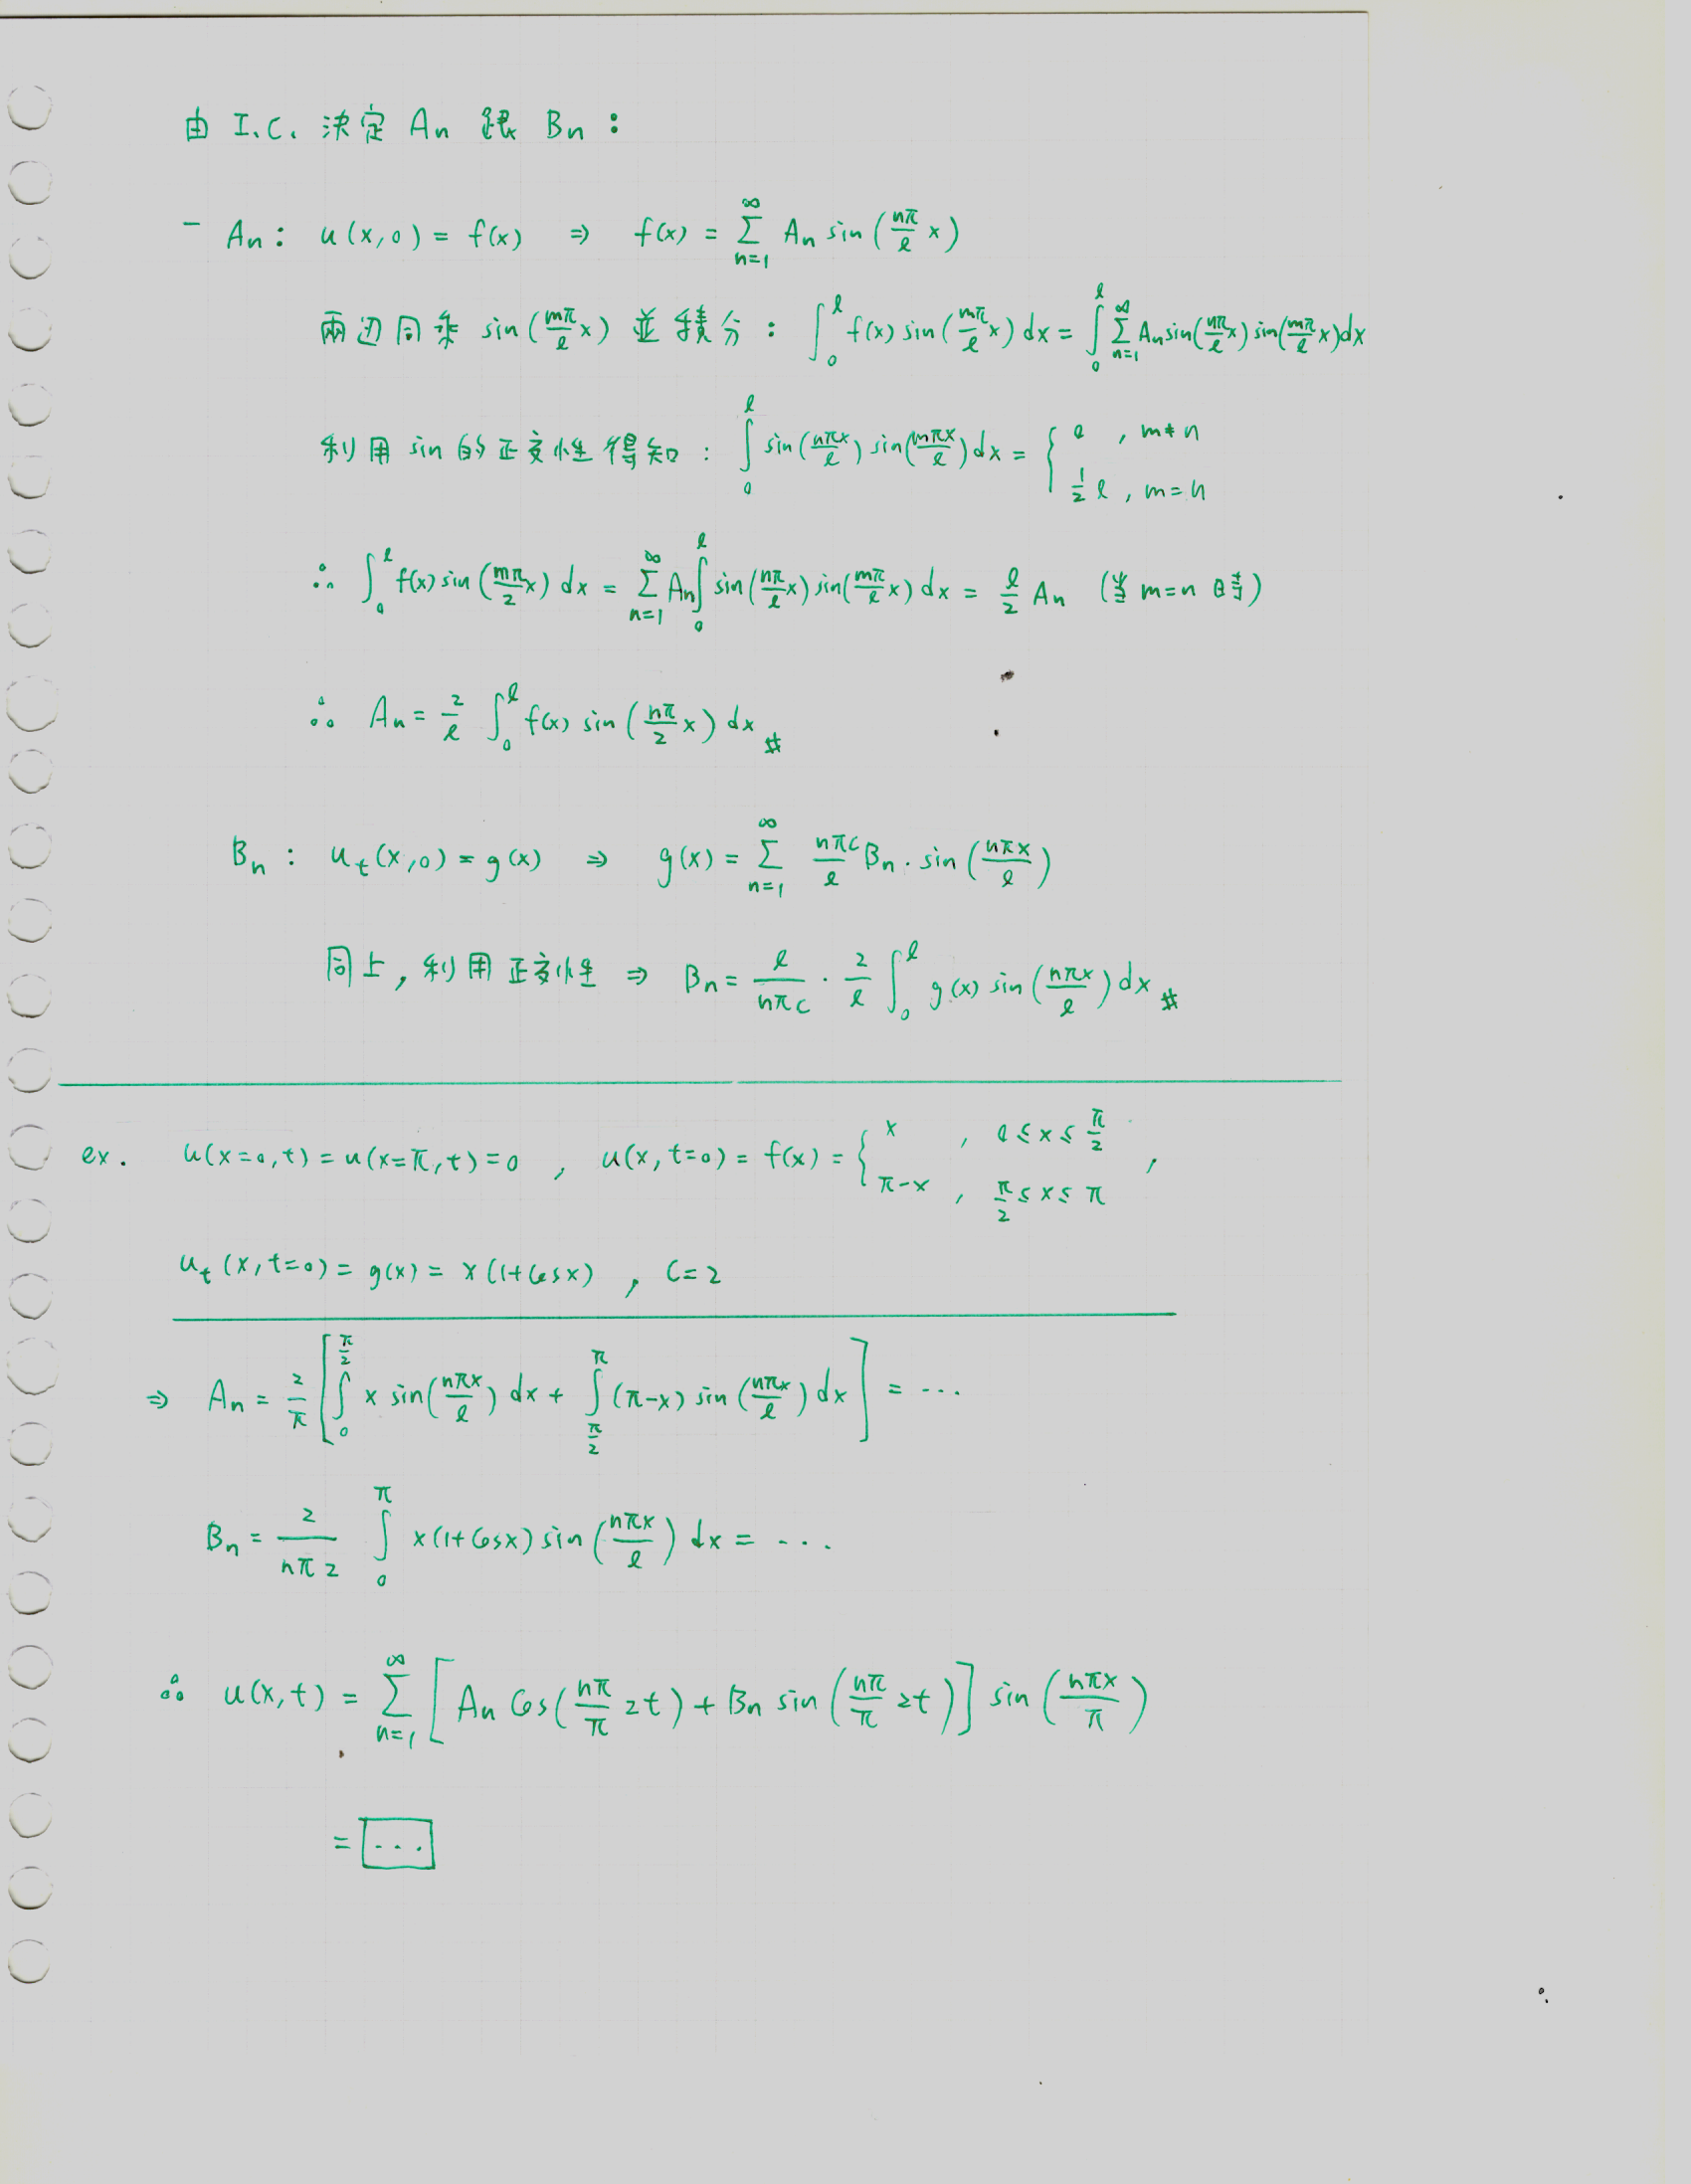 由 I.C. 決定 An 跟 Bn :
- An : u(x,0) = f(x) ⇒ f(x) = ∑_{n=1}^{∞} An sin(nπ/ℓ x)
兩边同乘 sin(mπ/ℓ x) 並積分 : ∫_0^ℓ f(x) sin(mπ/ℓ x) dx = ∫_0^ℓ ∑_{n=1}^{∞} An sin(nπ/ℓ x) sin(mπ/ℓ x) dx
利用 sin 的正交性得知 : ∫_0^ℓ sin(nπx/ℓ) sin(mπx/ℓ) dx = { 0 , m≠n
1/2 ℓ , m=n
∴ ∫_0^ℓ f(x) sin(mπ/2 x) dx = ∑_{n=1}^{∞} An ∫_0^ℓ sin(nπ/ℓ x) sin(mπ/ℓ x) dx = ℓ/2 An (当 m=n 時)
∴ An = 2/ℓ ∫_0^ℓ f(x) sin(nπ/2 x) dx #
Bn : u_t(x,0) = g(x) ⇒ g(x) = ∑_{n=1}^{∞} nπc/ℓ Bn · sin(nπx/ℓ)
同上, 利用正交性 ⇒ Bn = ℓ/nπc · 2/ℓ ∫_0^ℓ g(x) sin(nπx/ℓ) dx #
ex. u(x=0,t) = u(x=π,t) = 0 , u(x,t=0) = f(x) = { x , 0≤x≤π/2 ,
π-x , π/2≤x≤π
u_t(x,t=0) = g(x) = x(1+Cosx) , C=2
⇒ An = 2/π [ ∫_0^{π/2} x sin(nπx/ℓ) dx + ∫_{π/2}^{π} (π-x) sin(nπx/ℓ) dx ] = ...
Bn = 2/nπ2 ∫_0^π x(1+Cosx) sin(nπx/ℓ) dx = ...
∴ u(x,t) = ∑_{n=1}^{∞} [ An Cos(nπ/π 2t) + Bn sin(nπ/π 2t) ] sin(nπx/π)
= ...